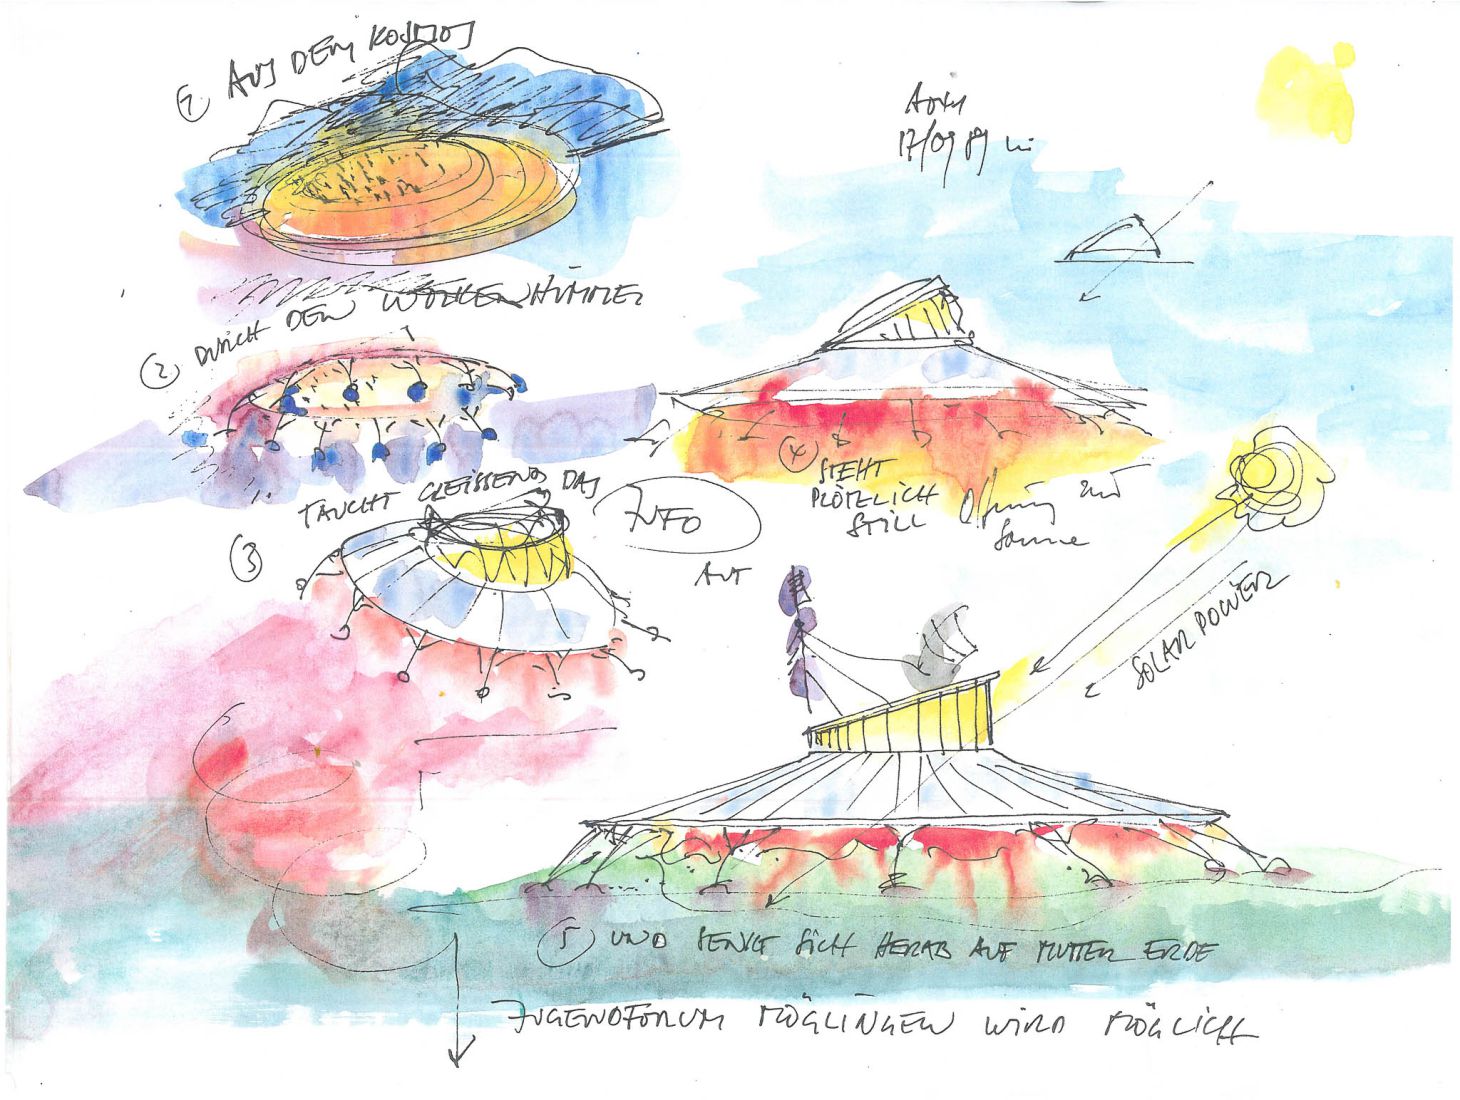 ① AUS DEM KOSMOS
17/09 89
② DURCH DEN WOLKENHIMMEL
③ TAUCHT GLEISSEND DAS
JUFO
AUF
④ STEHT
PLÖTZLICH
STILL
Öffnung
Sonne
SOLAR POWER
⑤ UND SENKT SICH HERAB AUF MUTTER ERDE
JUGENDFORUM MÖGLINGEN WIRD MÖGLICH